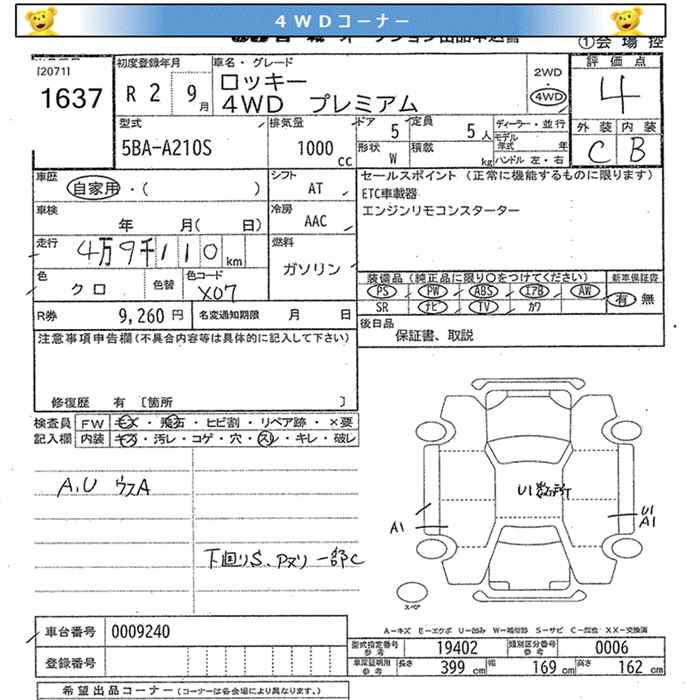 4WDコーナー
オークション出品申込書 ①会場控
[2071]
1637
初度登録年月 車名・グレード 評価点
R 2 9月 ロッキー 2WD 4
4WD プレミアム 4WD
型式 排気量 ドア 5 定員 5人 ディーラー・並行 外装 内装
5BA-A210S 1000cc 形状 W 積載 kg モデル年式 年 C B
ハンドル 左・右
車歴 シフト セールスポイント (正常に機能するものに限ります)
自家用・( ) AT ETC車載器
車検 冷房 エンジンリモコンスターター
年 月( 日) AAC
走行 燃料
4万9千110km ガソリン
色 色替 色コード 装備品(純正品に限り○をつけてください) 新車保証書
クロ X07 PS PW ABS エアB AW 有 無
SR ナビ TV カワ
R券 9,260円 名変通知期限 月 日 後日品
保証書、取説
注意事項申告欄(不具合内容等は具体的に記入して下さい)
修復歴 有 [箇所 ]
検査員 FW キズ・飛石・ヒビ割・リペア跡・×要
記入欄 内装 キズ・汚レ・コゲ・穴・スレ・キレ・破レ
A,U ウスA
U1数ヶ所
A1
U1
A1
下回りS、アヌリ一部C
スペア
A-キズ E-エクボ U-凹み W-補修跡 S-サビ C-腐食 XX-交換済
車台番号 0009240
登録番号
型式指定番号 参考 19402 類別区分番号 参考 0006
車庫証明用 参考 長さ 399cm 幅 169cm 高さ 162cm
希望出品コーナー(コーナーは各会場により異なります。)